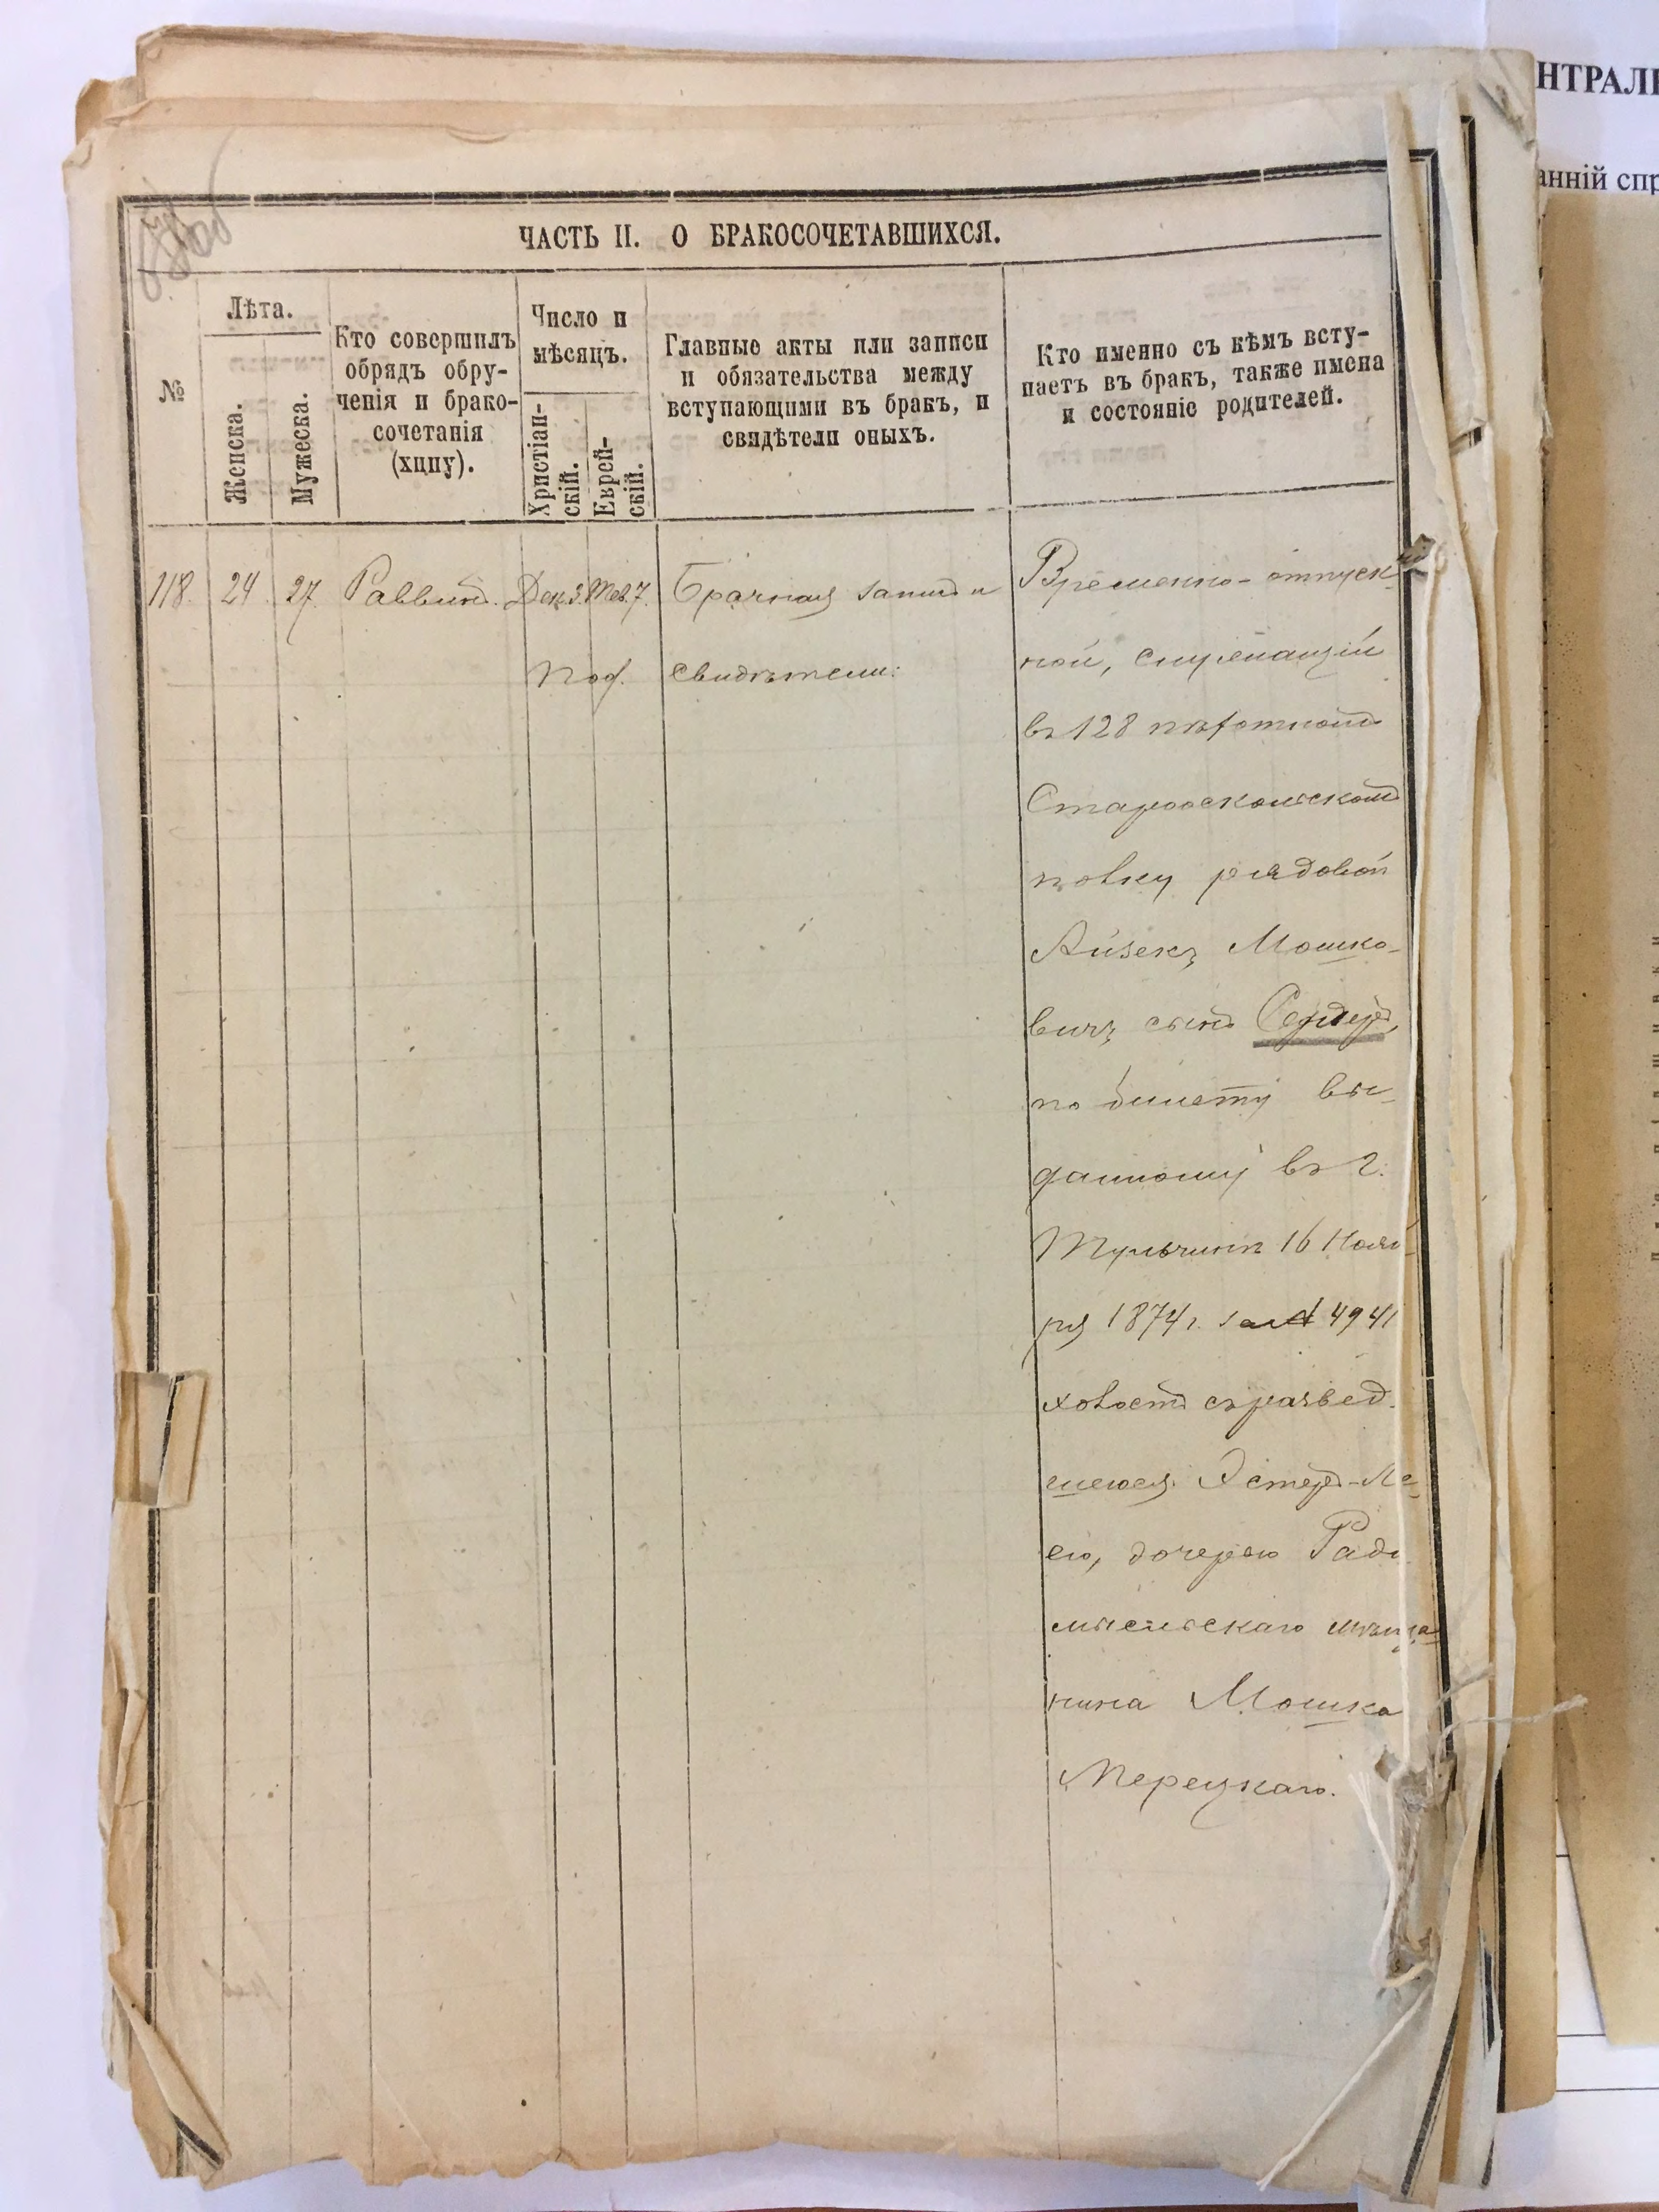 НТРАЛЬ
анній спр
ЧАСТЬ II. О БРАКОСОЧЕТАВШИХСЯ.
№
Лѣта.
Женска.
Мужеска.
Кто совершилъ
обрядъ обру-
ченія и брако-
сочетанія
(хипу).
Число и
мѣсяцъ.
Христіан-
скій.
Еврей-
скій.
Главные акты или записи
и обязательства между
вступающими въ бракъ, и
свидѣтели оныхъ.
Кто именно съ кѣмъ всту-
паетъ въ бракъ, также имена
и состояніе родителей.
118. 24. 27. Раввинъ. Дек. 3. Тев. 7. Брачная запись и
свидѣтели:
Временно-отпуск-
ной, служащій
въ 128 пѣхотномъ
Старооскольскомъ
полку рядовой
Айзекъ Мошко-
вичъ сынъ
по билету вы-
данному въ г.
Тульчинѣ 16 Нояб-
ря 1874 г. за № 4941
холостъ съ развед-
шеюся Эстеръ-Ле-
ею, дочерью Радо
мысльскаго мѣща-
нина Мошка
Мерецкаго.